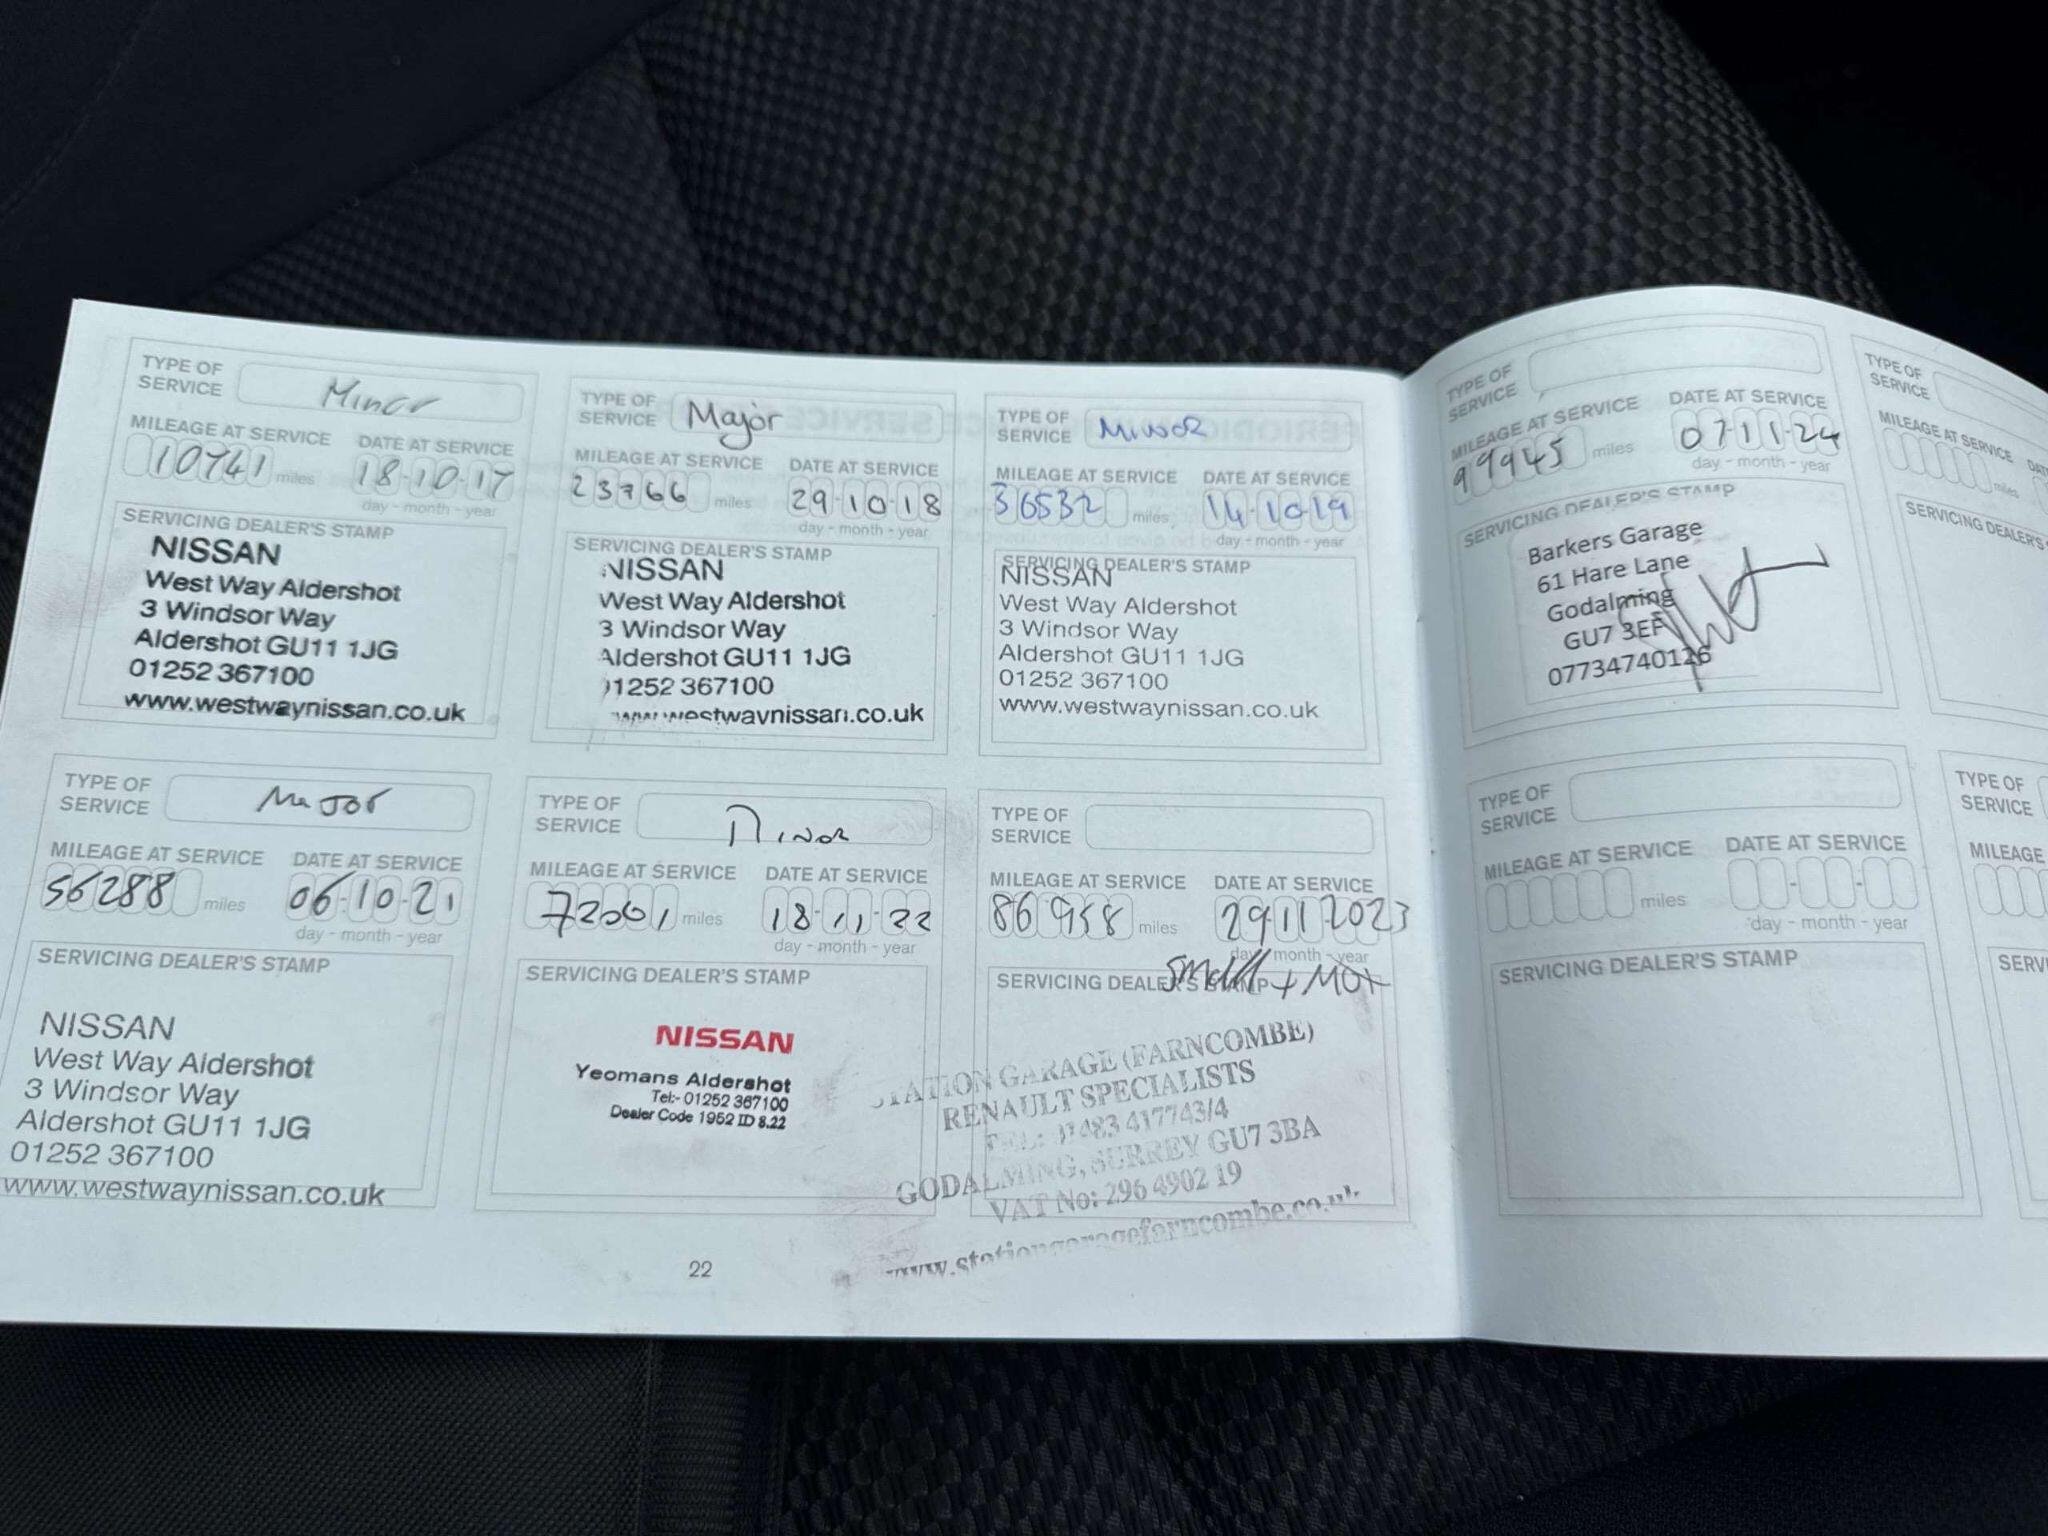 TYPE OF SERVICE Minor
MILEAGE AT SERVICE DATE AT SERVICE
10741 miles 18-10-17
day - month - year
SERVICING DEALER'S STAMP
NISSAN
West Way Aldershot
3 Windsor Way
Aldershot GU11 1JG
01252 367100
www.westwaynissan.co.uk
TYPE OF SERVICE Major
MILEAGE AT SERVICE DATE AT SERVICE
23766 miles 29-10-18
day - month - year
SERVICING DEALER'S STAMP
NISSAN
West Way Aldershot
3 Windsor Way
Aldershot GU11 1JG
01252 367100
www.westwaynissan.co.uk
TYPE OF SERVICE MINOR
MILEAGE AT SERVICE DATE AT SERVICE
36532 miles 14-10-19
day - month - year
SERVICING DEALER'S STAMP
NISSAN
West Way Aldershot
3 Windsor Way
Aldershot GU11 1JG
01252 367100
www.westwaynissan.co.uk
TYPE OF SERVICE MaJOR
MILEAGE AT SERVICE DATE AT SERVICE
56288 miles 06-10-21
day - month - year
SERVICING DEALER'S STAMP
NISSAN
West Way Aldershot
3 Windsor Way
Aldershot GU11 1JG
01252 367100
www.westwaynissan.co.uk
TYPE OF SERVICE Minor
MILEAGE AT SERVICE DATE AT SERVICE
72001 miles 18-11-22
day - month - year
SERVICING DEALER'S STAMP
NISSAN
Yeomans Aldershot
Tel:- 01252 367100
Dealer Code 1952 ID 8.22
TYPE OF SERVICE
MILEAGE AT SERVICE DATE AT SERVICE
86958 miles 29-11-2023
day - month - year
Small + MOT
SERVICING DEALER'S STAMP
STATION GARAGE (FARNCOMBE)
RENAULT SPECIALISTS
TEL: 01483 417743/4
GODALMING, SURREY GU7 3BA
VAT No: 296 4902 19
www.stationgaragefarncombe.co.uk
22
TYPE OF SERVICE
MILEAGE AT SERVICE DATE AT SERVICE
99945 miles 07-11-24
day - month - year
SERVICING DEALER'S STAMP
Barkers Garage
61 Hare Lane
Godalming
GU7 3EF
07734740126
TYPE OF SERVICE
MILEAGE AT SERVICE
miles
SERVICING DEALER'S
TYPE OF SERVICE
MILEAGE AT SERVICE DATE AT SERVICE
miles
day - month - year
SERVICING DEALER'S STAMP
TYPE OF SERVICE
MILEAGE